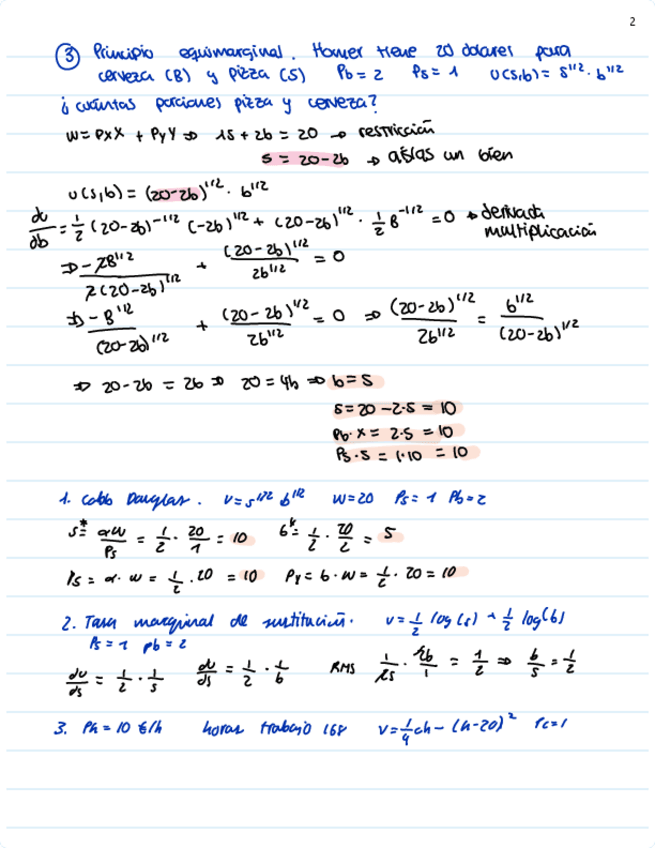 2
③ Principio equimarginal. Homer tiene 20 dolares para
cerveza (B) y pizza (S) Pb = 2 Ps = 1 U(s,b) = s^1/2 · b^1/2
¿cuantas porciones pizza y cerveza?
W = PxX + PyY ⇒ 1S + 2b = 20 → restricción
S = 20-2b → aíslas un bien
U(s,b) = (20-2b)^1/2 · b^1/2
du/db = 1/2 (20-2b)^-1/2 (-2b)^1/2 + (20-2b)^1/2 · 1/2 B^-1/2 = 0 → derivada
multiplicación
⇒ -2B^1/2 / 2(20-2b)^1/2 + (20-2b)^1/2 / 2b^1/2 = 0
⇒ -B^1/2 / (20-2b)^1/2 + (20-2b)^1/2 / 2b^1/2 = 0 ⇒ (20-2b)^1/2 / 2b^1/2 = b^1/2 / (20-2b)^1/2
⇒ 20-2b = 2b ⇒ 20 = 4b ⇒ b = 5
S = 20 - 2·5 = 10
Pb · X = 2·5 = 10
Ps · S = 1·10 = 10
1. Cobb Douglas. V = s^1/2 b^1/2 W=20 Ps = 1 Pb = 2
S* = αW/Ps = 1/2 · 20/1 = 10 b* = 1/2 · 20/2 = 5
Ps = α · W = 1/2 · 20 = 10 Py = b · W = 1/2 · 20 = 10
2. Tasa marginal de sustitución. V = 1/2 log(s) + 1/2 log(b)
Ps = 1 Pb = 2
du/ds = 1/2 · 1/s du/ds = 1/2 · 1/b RMS 1/2s · 2b/1 = 1/2 ⇒ b/s = 1/2
3. Ph = 10 €/h horas trabajo 168 V = 1/4 ch - (h-20)^2 Pc = 1